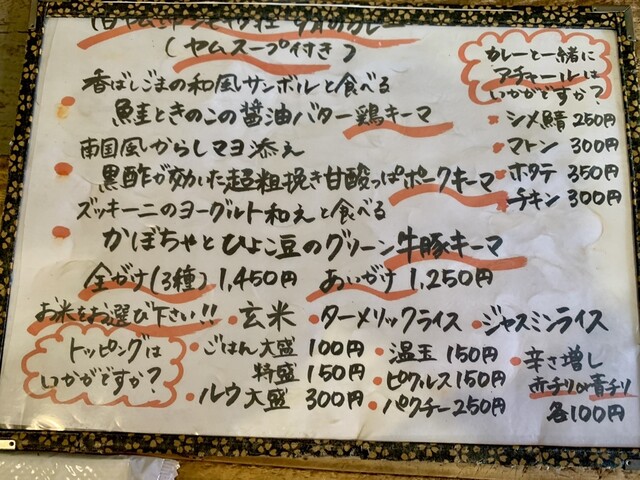 9月のカレー
(ヤムスープ付き)
カレーと一緒に
アチャールは
いかがですか?
・シメ鯖 250円
・マトン 300円
・ホタテ 350円
・チキン 300円
香ばしごまの和風サンボルと食べる
・鮭ときのこの醤油バター鶏キーマ
南国風からしマヨ添え
・黒酢が効いた超粗挽き甘酸っぱポークキーマ
ズッキーニのヨーグルト和えと食べる
・かぼちゃとひよこ豆のグリーン牛豚キーマ
全がけ(3種) 1,450円 あいがけ 1,250円
お米をお選び下さい!! ・玄米 ・ターメリックライス ・ジャスミンライス
トッピングは
いかがですか?
・ごはん大盛 100円
特盛 150円
・ルウ大盛 300円
・温玉 150円
・ピクルス 150円
・パクチー 250円
・辛さ増し
赤チリor青チリ
各100円